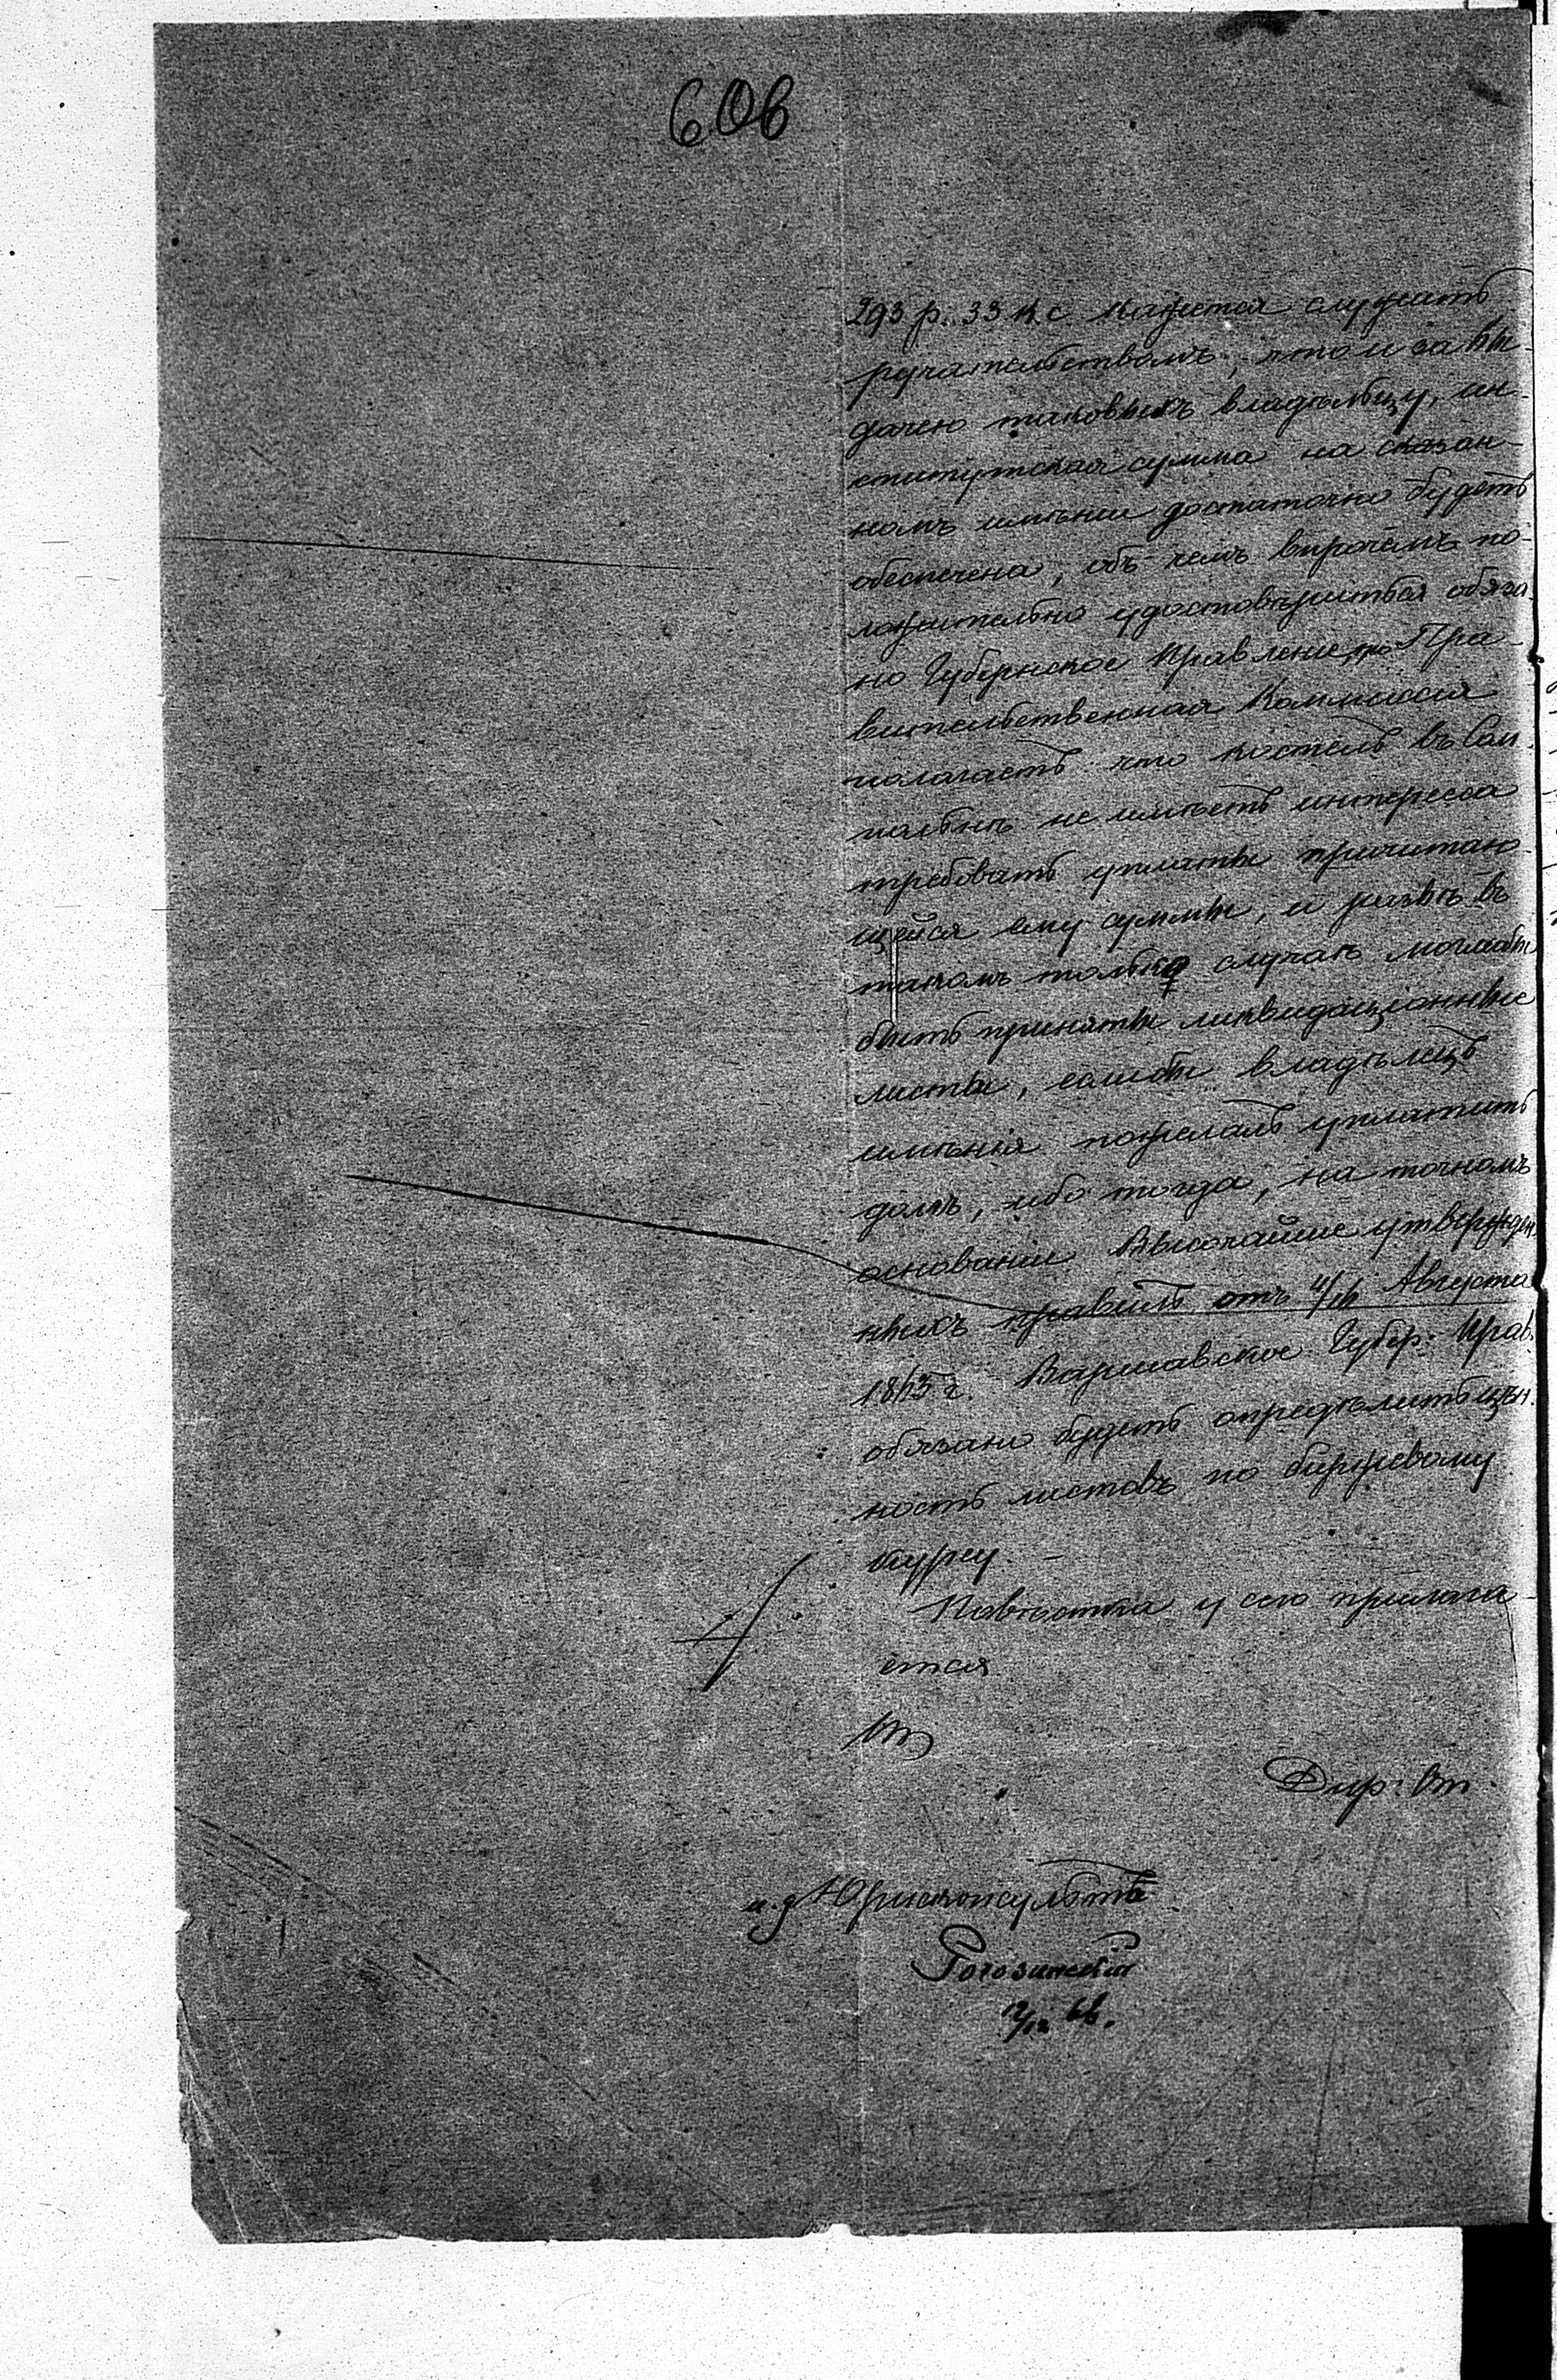 606
293 р. 33 к. с. кажется служитъ
ручательствомъ, что и за вы-
дачею таковыхъ владѣльцу, ин-
ститутская сумма на сказан-
номъ имѣніи достаточно будетъ
обеспечена, объ чемъ впрочемъ по-
ложительно удостовѣриться обяза-
но Губернское Правленіе, Пра-
вительственная Коммиссія
полагаетъ что костелъ въ
не имѣетъ интересса
требовать уплаты причитаю-
щейся ему суммы, и развѣ въ
такомъ только случаѣ моглибы
быть приняты ликвидаціонные
листы, еслибы владѣлецъ
имѣнія пожелалъ уплатить
долгъ, ибо тогда, на точномъ
основаніи Высочайше утвержден
ныхъ правилъ отъ Августа
1865 г. Варшавское Губер: Прав:
обязано будетъ опредѣлить цѣн-
ность листовъ по биржевому
курсу. —
Повѣстка у сего прилага-
ется
Дир: От.
и. д. Юрисконсульта
Рогозинскій
12/12 66.